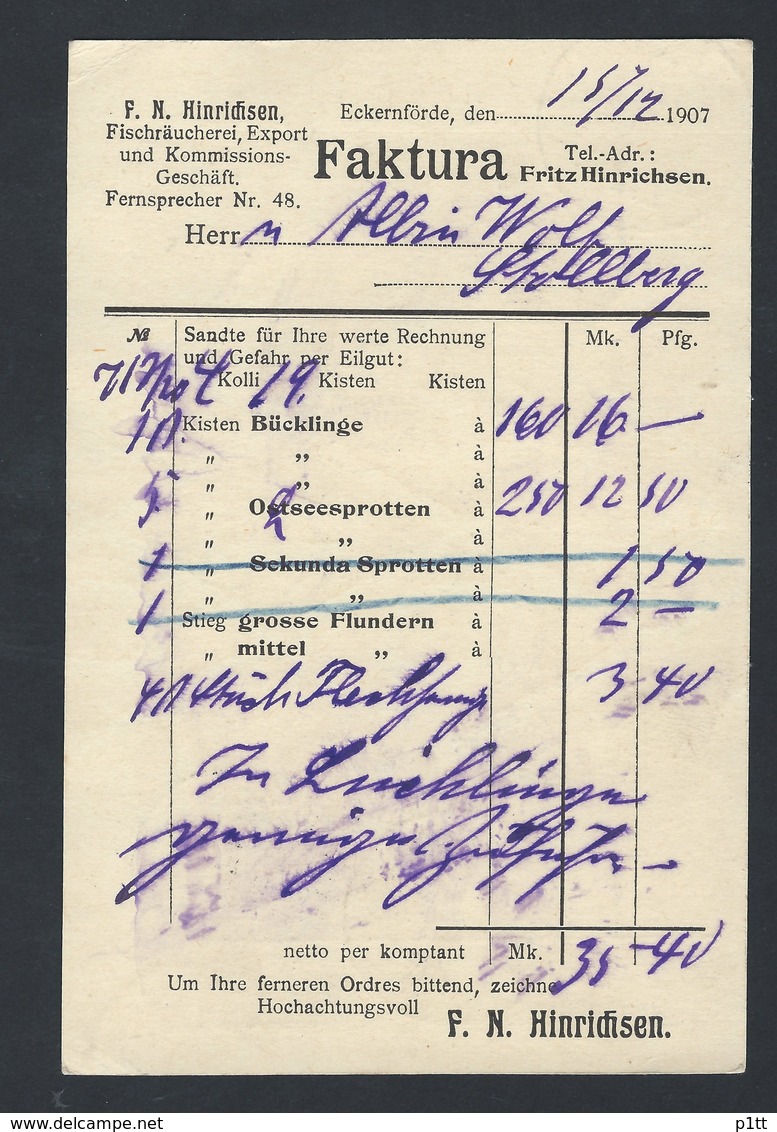 F. N. Hinrichsen,
Fischräucherei, Export
und Kommissions-
Geschäft.
Fernsprecher Nr. 48.
Eckernförde, den 15/12 1907
Faktura
Tel.-Adr.:
Fritz Hinrichsen.
Herrn Albin Wolf
Stollberg
№ Sandte für Ihre werte Rechnung Mk. Pfg.
und Gefahr per Eilgut:
4 Kolli 19. Kisten Kisten
10 Kisten Bücklinge à 160 16 —
„ „ à
„ „ à
5 „ Ostseesprotten à 250 12 50
„ „ à
1 „ Sekunda Sprotten à 1 50
„ „ à
1 Stieg grosse Flundern à 2 —
„ mittel „ à
40 Stück 3 40
In Bücklinge
wenige Zufuhr —
netto per komptant Mk. 35 - 40
Um Ihre ferneren Ordres bittend, zeichne
Hochachtungsvoll
F. N. Hinrichsen.
delcampe.net
p1tt